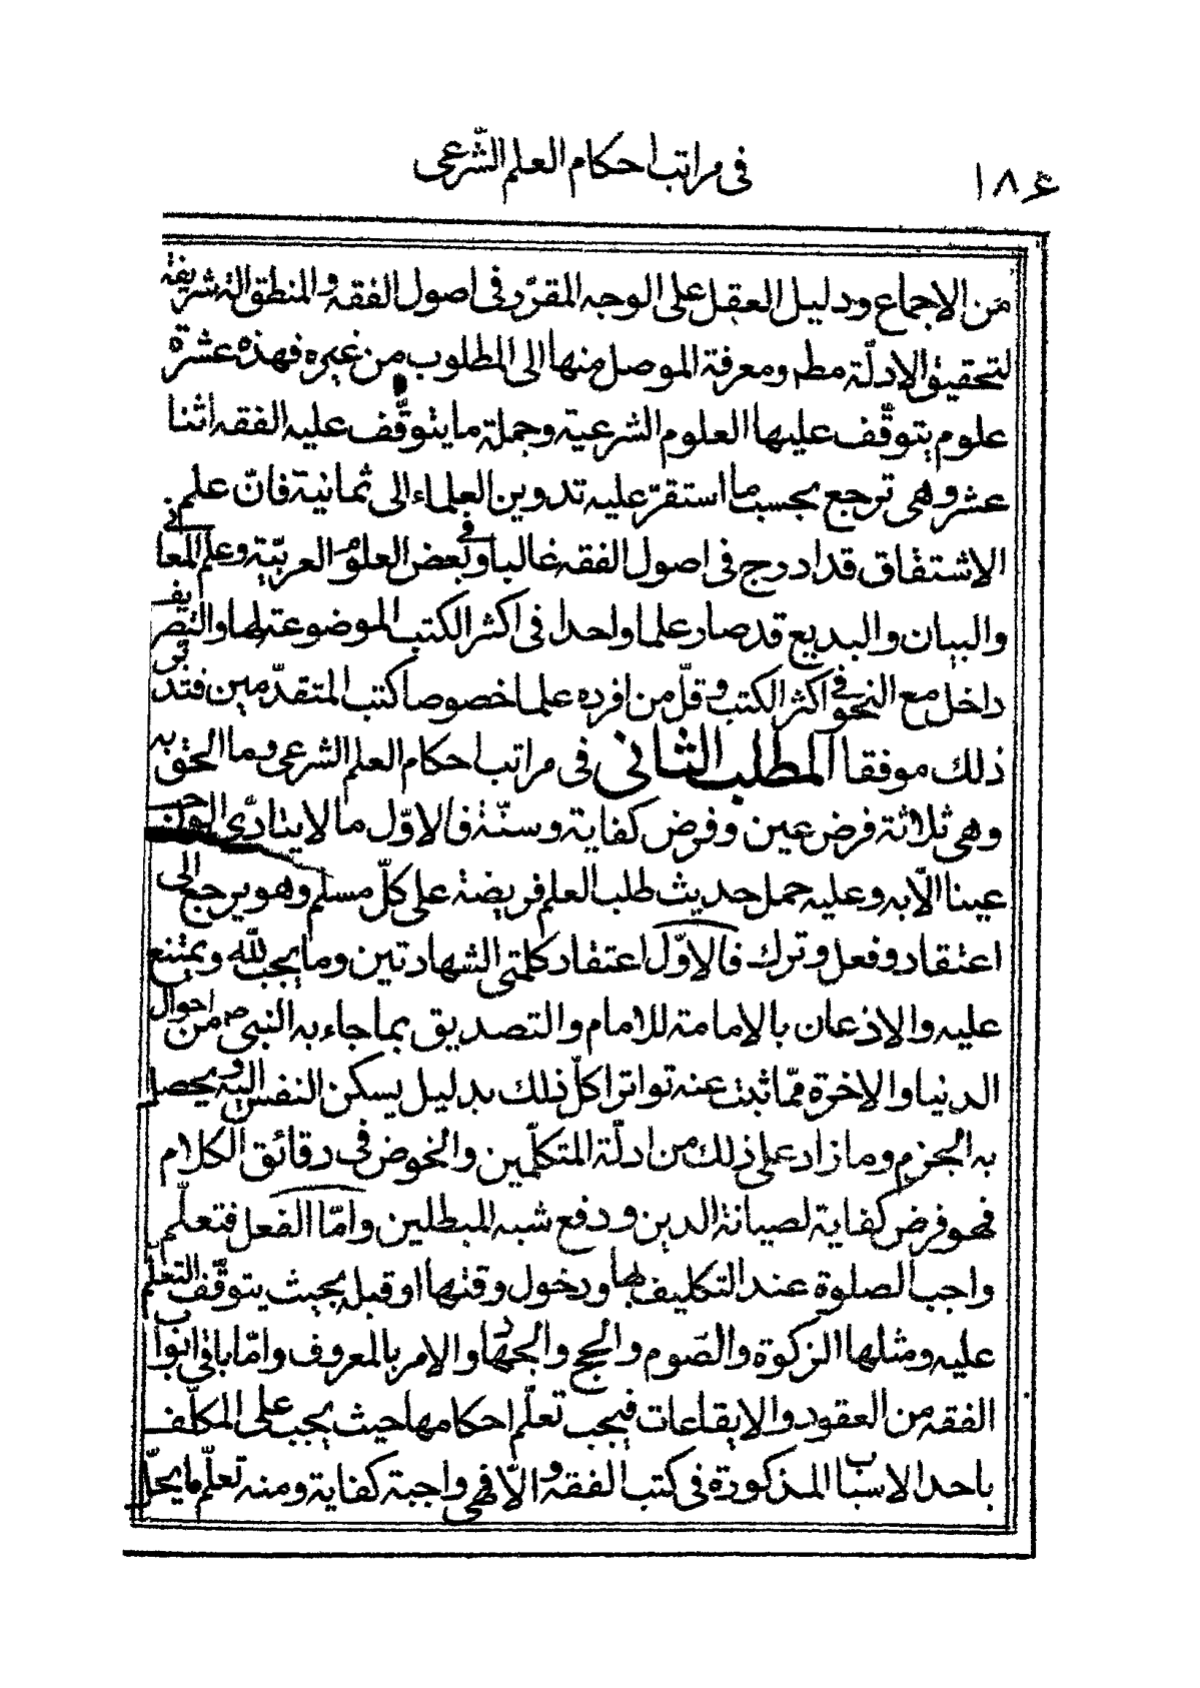 ١٨٤
فى مراتب احكام العلم الشّرعى
من الاجماع ودليل العقل على الوجه المقرّر فى اصول الفقه والمنطق الة شريفة
لتحقيق الادلّة مطم ومعرفة الموصل منها الى المطلوب من غيره فهذه عشرة
علوم يتوقّف عليها العلوم الشرعية وجملة ما يتوقّف عليه الفقه اثنا
عشر وهى ترجع بحسب ما استقرّ عليه تدوين العلماء الى ثمانية فانّ علم
الاشتقاق قد ادرج فى اصول الفقه غالبا وفى بعض العلوم العربيّة وعلم المعانى
والبيان والبديع قد صار علما واحدا فى اكثر الكتب الموضوعة لها والتصريف
داخل مع النحو فى اكثر الكتب وقلّ من افرده علما خصوصا كتب المتقدّمين فتدبر
ذلك موفقا المطلب الثانى فى مراتب احكام العلم الشرعى وما الحق به
وهى ثلاثة فرض عين وفرض كفاية وسنّة فالاوّل ما لا يتادّى الواجب
عينا الّا به وعليه حمل حديث طلب العلم فريضة على كلّ مسلم وهو يرجع الى
اعتقاد وفعل وترك فالاوّل اعتقاد كلمتى الشهادتين وما يجب لله ويمتنع
عليه والاذعان بالامامة للامام والتصديق بما جاء به النبى ص من احوال
الدنيا والاخرة ممّا ثبت عنه تواترا كلّ ذلك بدليل يسكن النفس اليه ويحصل
به الجزم وما زاد على ذلك من ادلّة المتكلّمين والخوض فى دقائق الكلام
فهو فرض كفاية لصيانة الدين ودفع شبه المبطلين وامّا الفعل فتعلّم
واجب الصلوة عند التكليف بها ودخول وقتها او قبله بحيث يتوقّف التعلّم
عليه ومثلها الزكوة والصّوم والحج والجهاد والامر بالمعروف وامّا باقى ابواب
الفقه من العقود والايقاعات فيجب تعلّم احكامها حيث يجب على المكلّف
باحد الاسباب المذكورة فى كتب الفقه والّا فهى واجبة كفاية ومنه تعلّم ما يحلّ